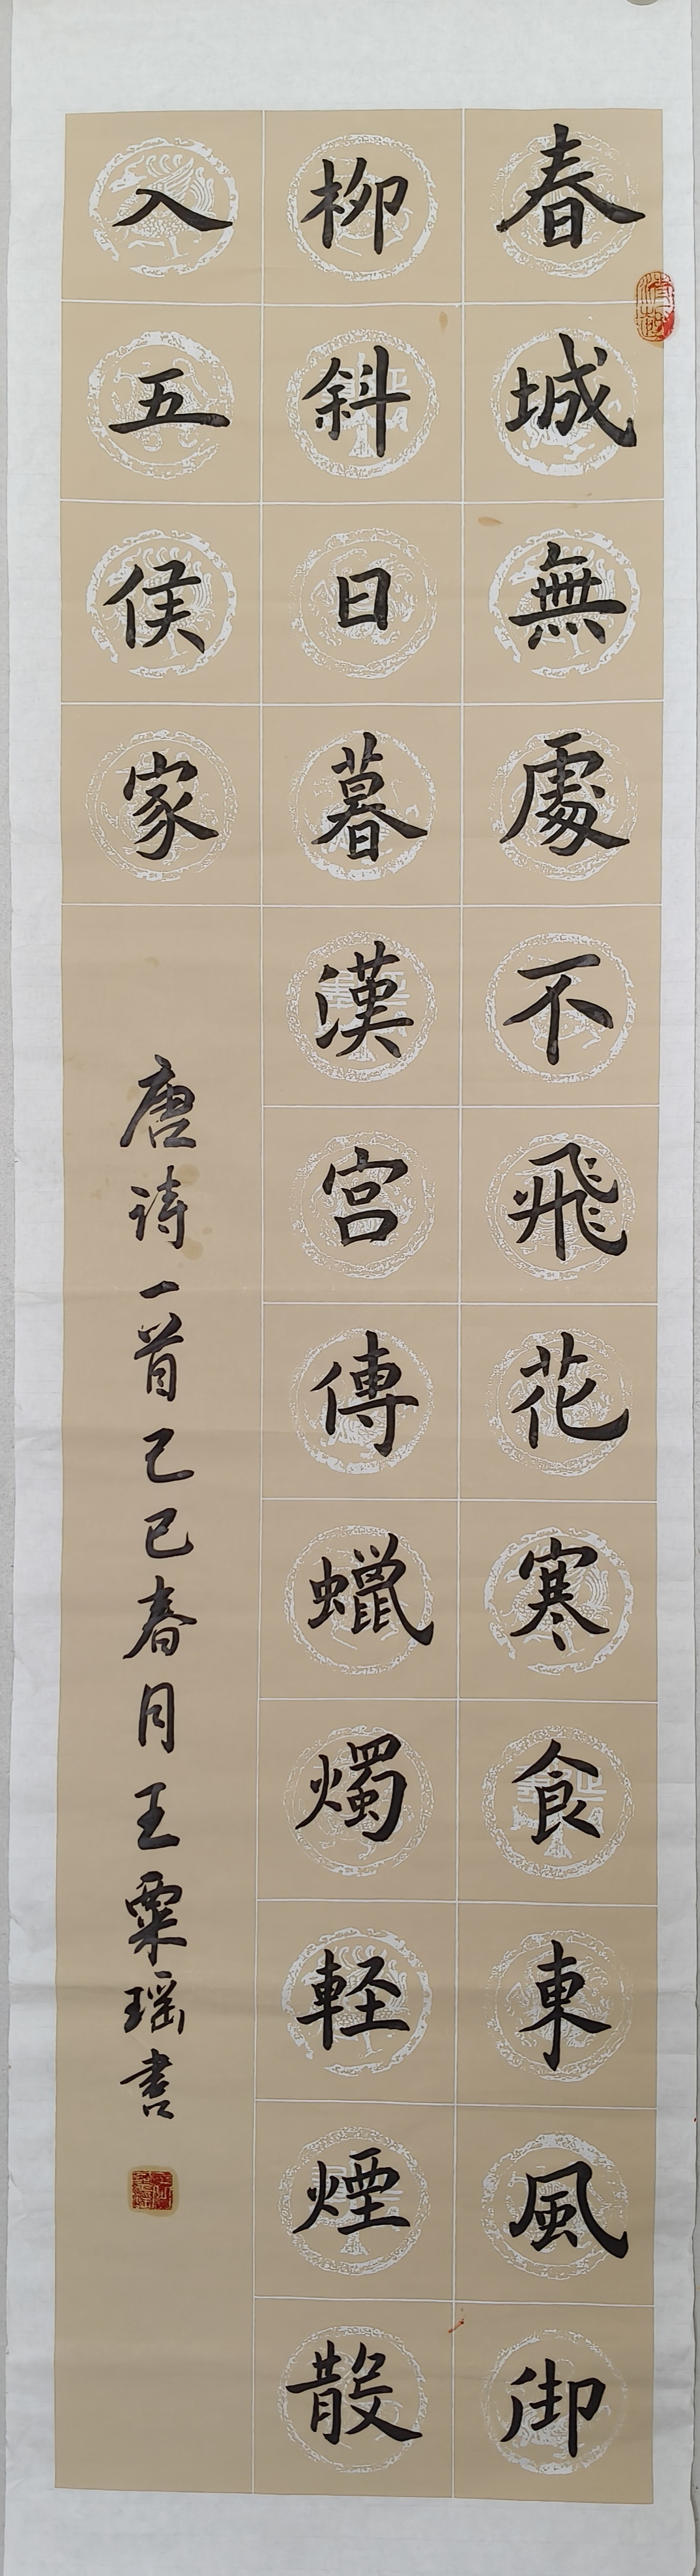 春城無處不飛花寒食東風御
柳斜日暮漢宮傳蠟燭軽煙散
入五侯家
唐诗一首己巳春月王粟瑶書